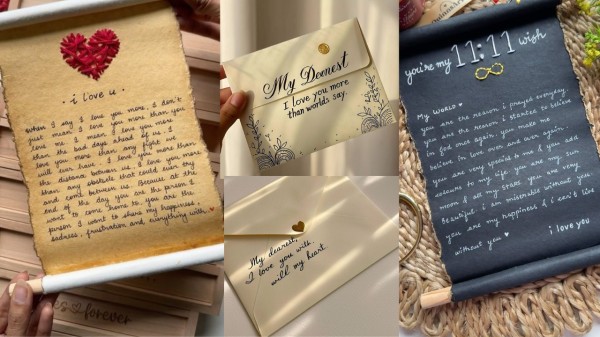 · i love u ·
When I say I love you more, I don't
mean I love you more than you
love me. I mean I love you more
than the bad days ahead of us. I
love you more than any fight we
will ever have. I love you more than
the distance between us, I love you more
than any obstacle that could ever try
and come between us. Because at the
end of the day you are the person I
want to come home to. You are the
person I want to share my happiness,
sadness, frustration and everything with.
forever
My Deenest
I love you more
than worlds say.
My dearest,
I love you with
will my heart.
you're my 11:11 wish
My WORLD ♥
You are the reason i prayed everyday.
You are the reason i started to believe
in god once again. you make me
believe in love over and over again.
you are very special to me & you add
colours to my life. you are my sun
moon & all my stars. you are very
Beautiful. i am miserable without you
you are my happiness & i can't live
without you ♥
i love you